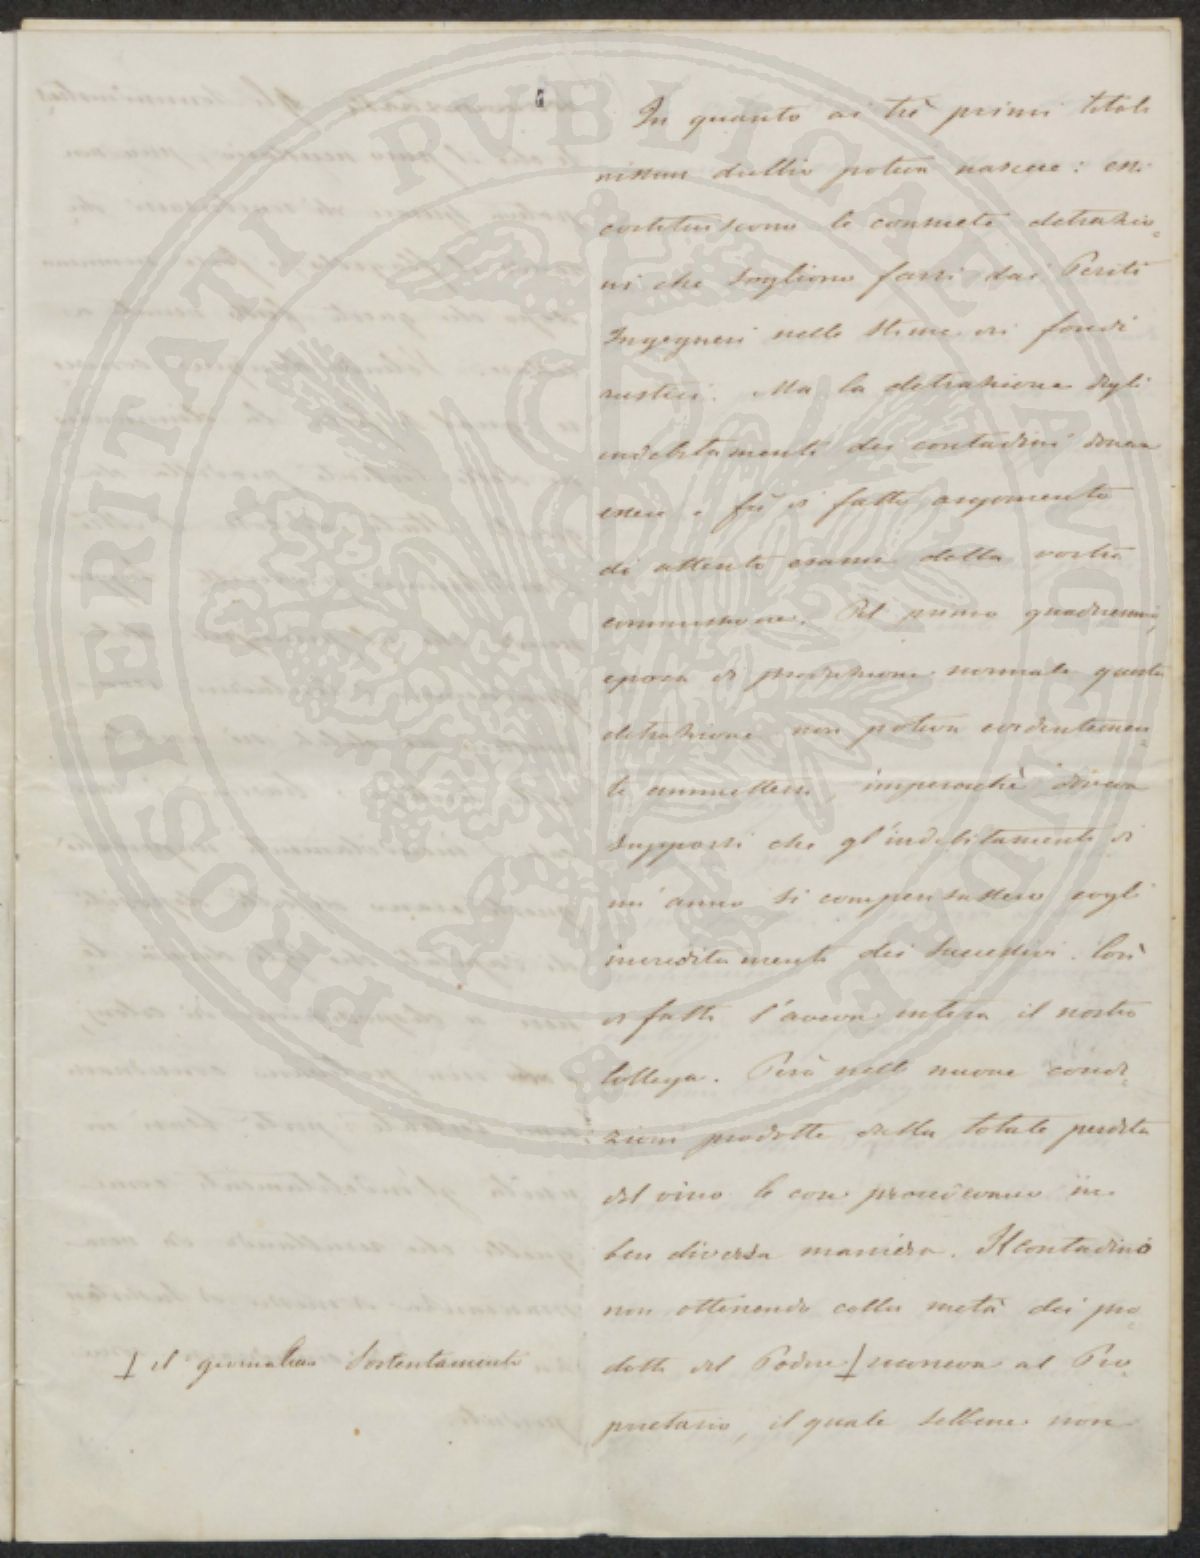 In quanto ai trè primi titoli
nissun dubbio poteva nascere: essi
costituiscono le consuete detrazio=
ni che sogliono farsi dai Periti
Ingegneri nelle stime di fondi
rustici. Ma la detrazione degli
indebitamenti dei contadini doveva
essere e fù di fatto argomento
di attento esame della vostra
commissione. Pel primo quadriennio,
epoca di produzione normale questa
detrazione non poteva evidentemen=
te ammettersi, imperocchè doveva
supporsi che gl'indebitamenti di
un'anno si compensassero cogli
increditamenti dei successivi. Così
di fatti l'aveva intesa il nostro
Collega. Però nelle nuove condi=
zioni prodotte dalla totale perdita
del vino le cose procedevano in
ben diversa maniera. Il contadino
non ottenendo colla metà dei pro=
dotti del Podere / ricorreva al Pro=
/ il giornaliero sostentamento
prietario, il quale sebbene non
PROSPERITATI PUBLICAE AUGENDAE